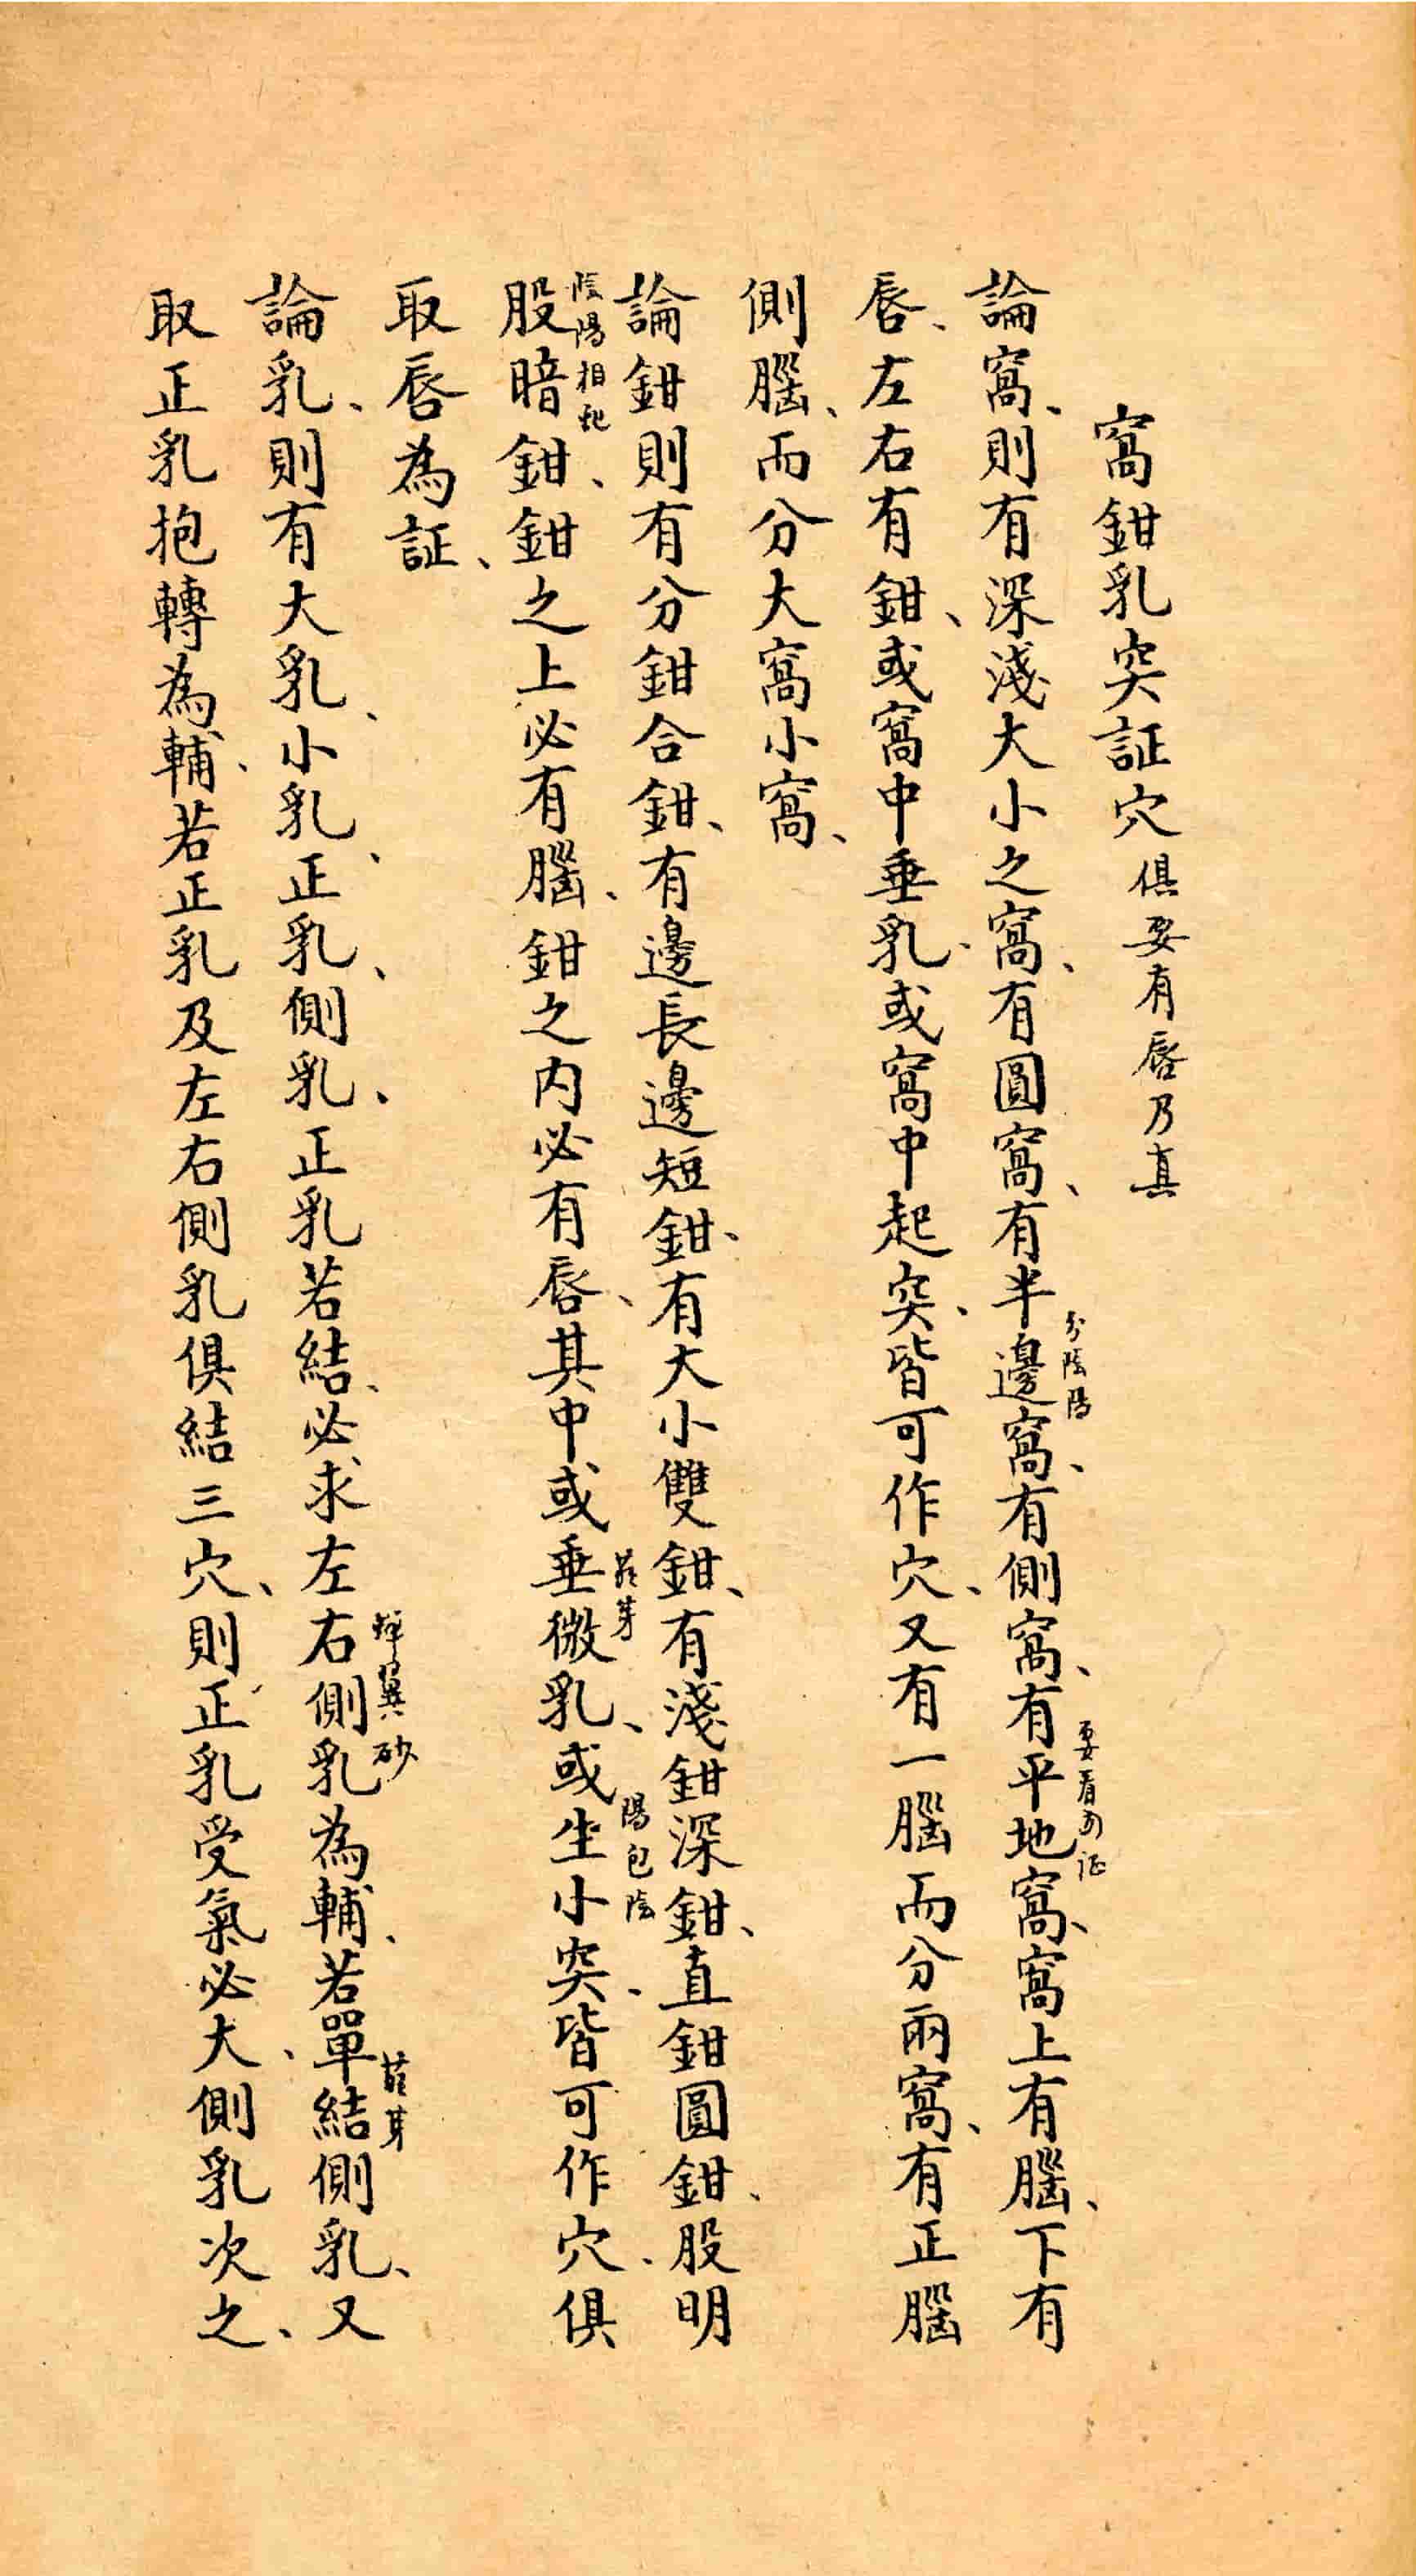 窩鉗乳突証穴 俱要有唇乃真
論窩、則有深淺大小之窩、有圓窩、有半邊窩、有側窩、有平地窩、窩上有腦、下有
分陰陽
要看
唇、左右有鉗、或窩中垂乳、或窩中起突、皆可作穴、又有一腦而分兩窩、有正腦
側腦、而分大窩小窩、
論鉗則有分鉗合鉗、有邊長邊短鉗、有大小雙鉗、有淺鉗深鉗、直鉗圓鉗、股明
陰陽相
股暗鉗、鉗之上必有腦、鉗之內必有唇、其中或垂微乳、或坐小突、皆可作穴、俱
芽
陽包陰
取唇為証、
論乳、則有大乳、小乳、正乳、側乳、正乳若結、必求左右側乳為輔、若單結側乳、又
蟬翼砂
芽
取正乳抱轉為輔、若正乳及左右側乳俱結三穴、則正乳受氣必大、側乳次之、